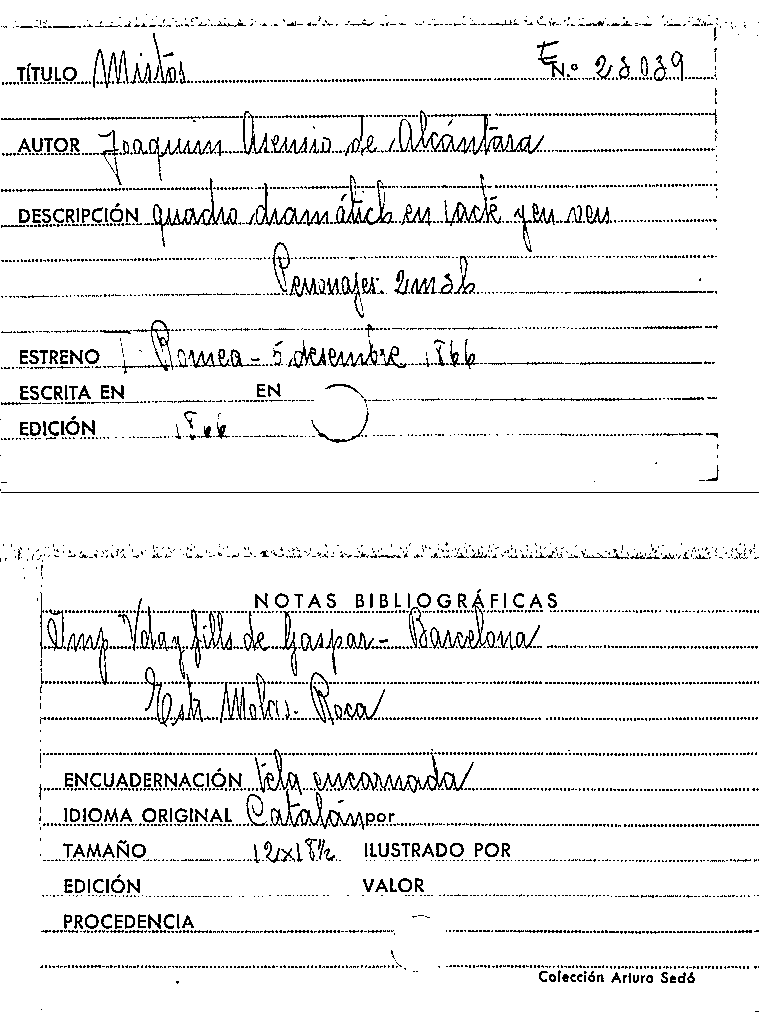 TÍTULO Mistos N.º 23039
AUTOR Joaquim Asensio de Alcántara
DESCRIPCIÓN quadro dramátich en 1 acte y en vers
Personajes. 2m3h
ESTRENO T. Romea - 5 desembre 1866
ESCRITA EN EN
EDICIÓN 1866
NOTAS BIBLIOGRÁFICAS
Imp Vda y fills de Gaspar - Barcelona
Molas. Roca
ENCUADERNACIÓN tela encarnada
IDIOMA ORIGINAL Catalán por
TAMAÑO 12x18½ ILUSTRADO POR
EDICIÓN VALOR
PROCEDENCIA
Colección Arturo Sedó